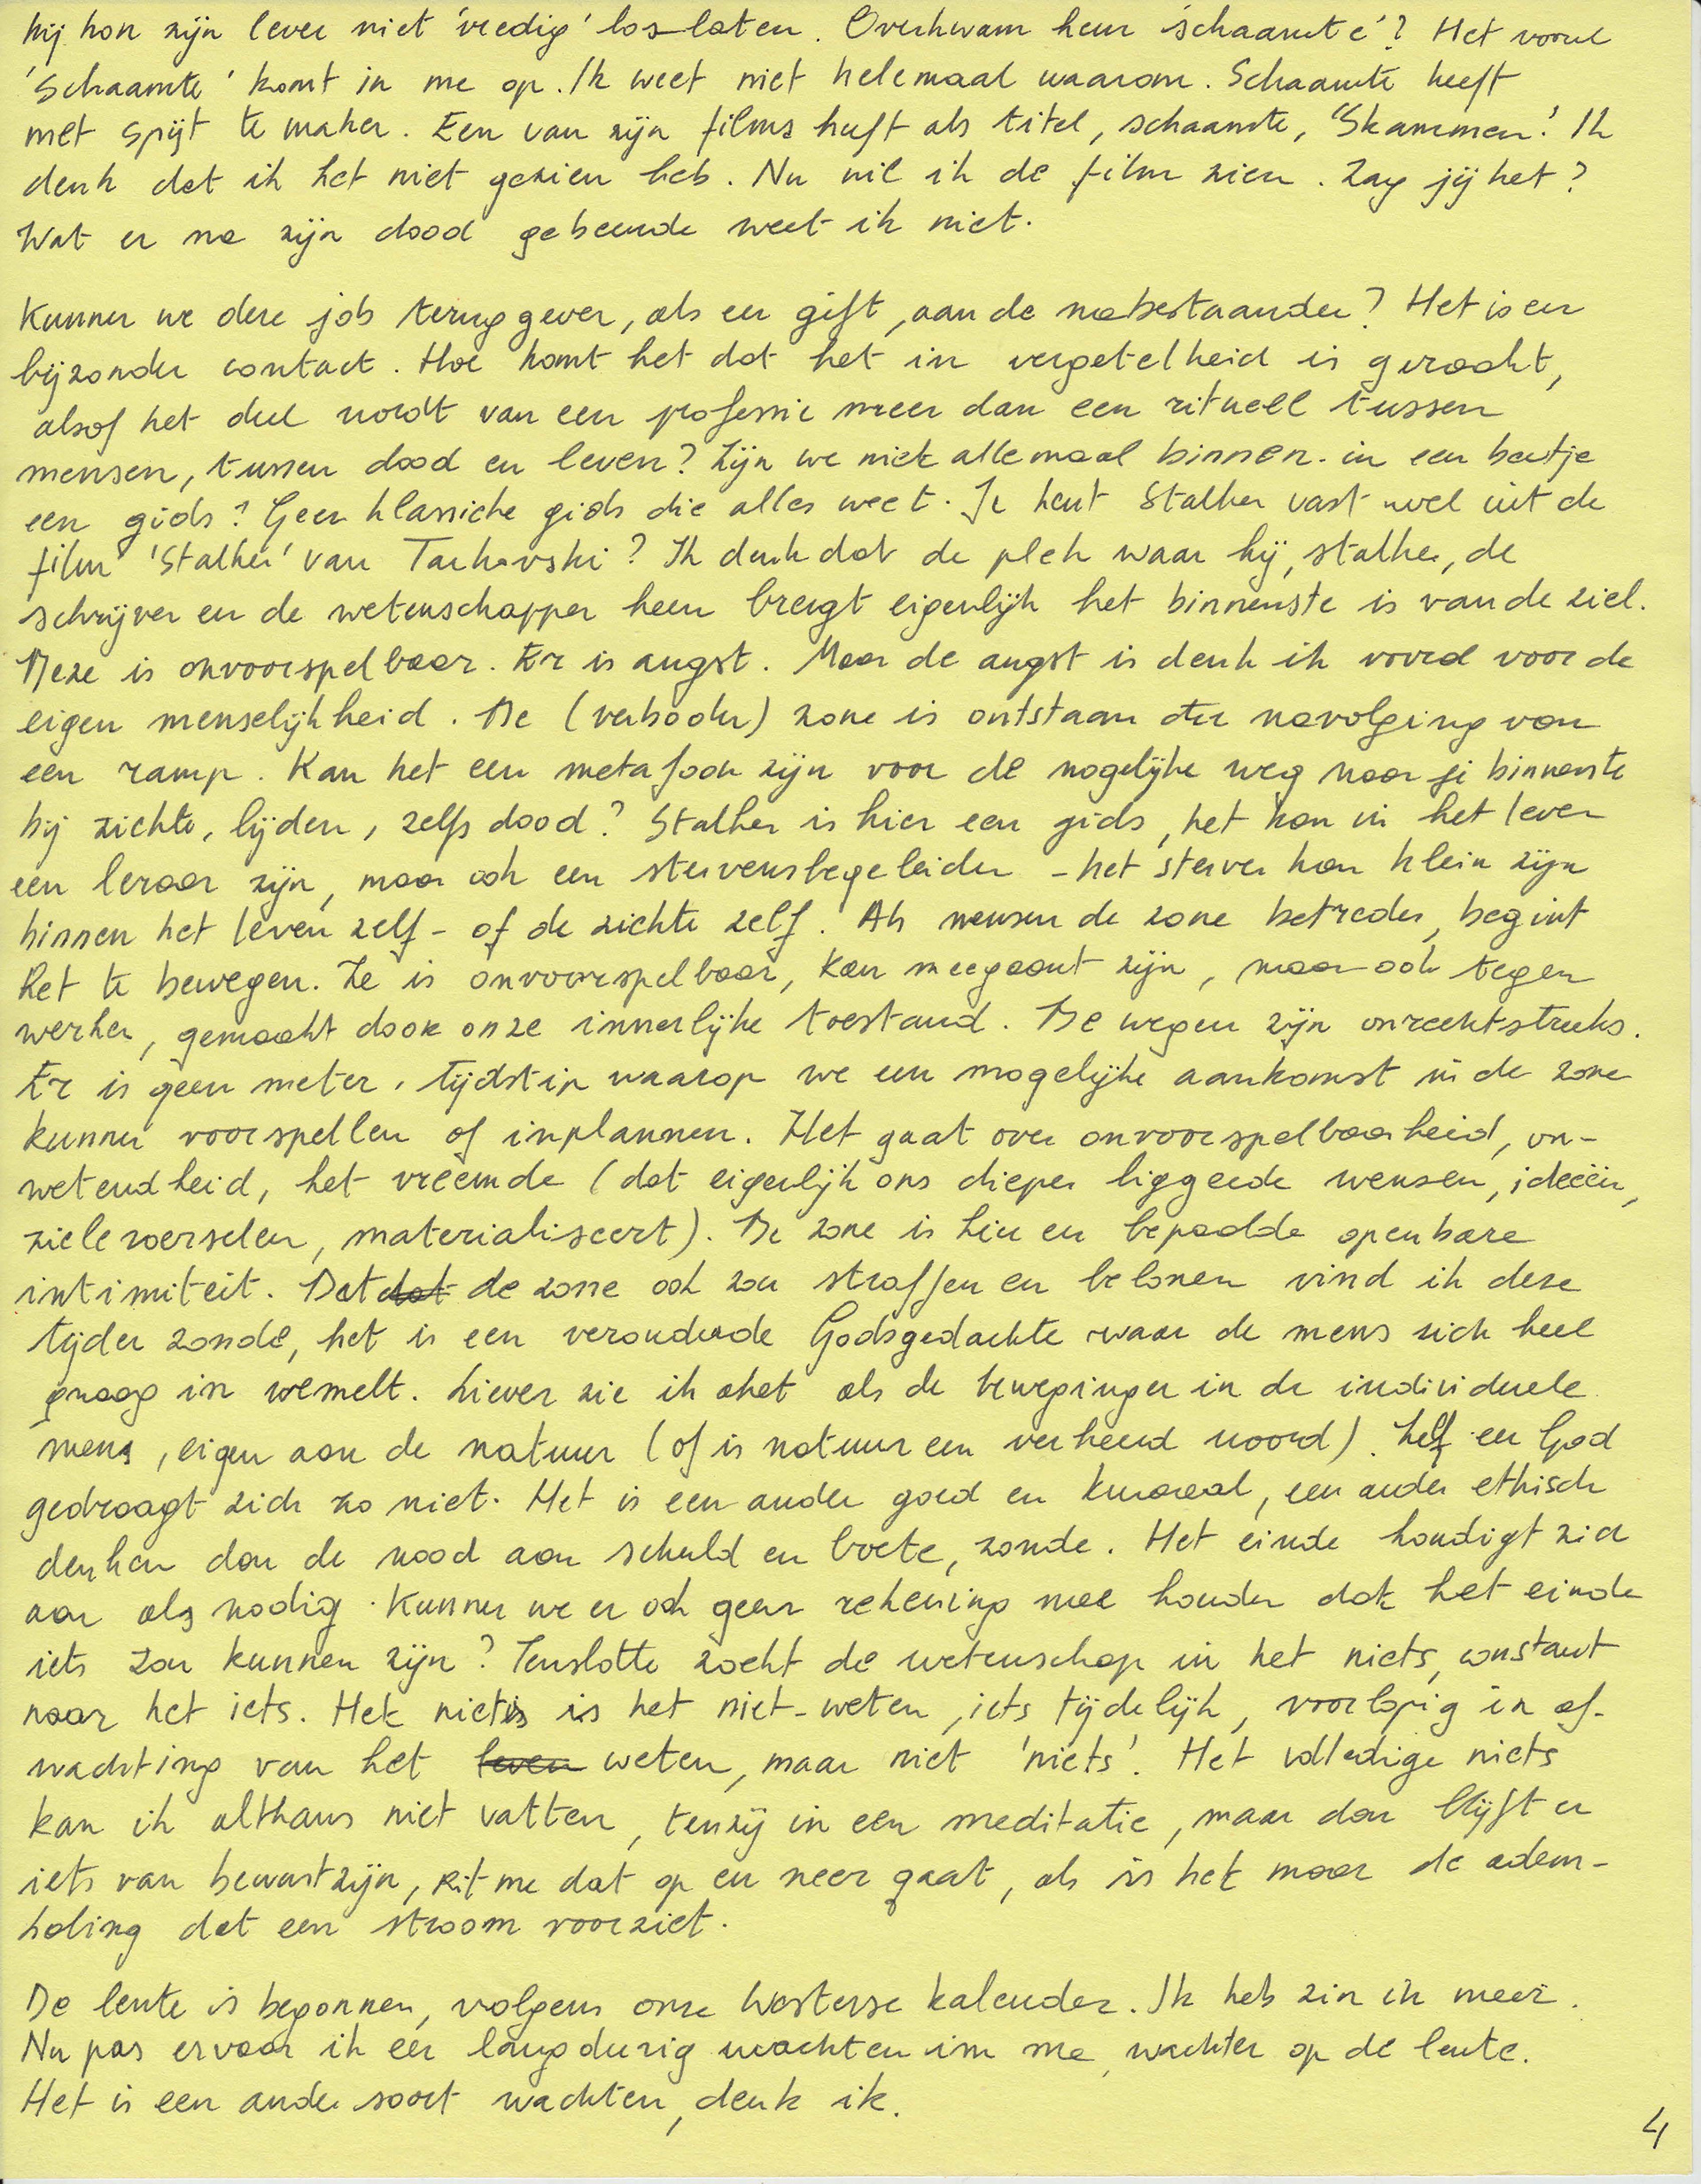 hij kon zijn leven niet 'vredig' los laten. Overkwam hem 'schaamte'? Het woord
'Schaamte' komt in me op. Ik weet niet helemaal waarom. Schaamte heeft
met spijt te maken. Een van zijn films heeft als titel, schaamte, 'Skammen'. Ik
denk dat ik het niet gezien heb. Nu wil ik de film zien. Zag jij het?
Wat er na zijn dood gebeurde weet ik niet.
Kunnen we deze job terug geven, als een gift, aan de nabestaanden? Het is een
bijzonder contact. Hoe komt het dat het in vergetelheid is geraakt,
alsof het deel wordt van een professie meer dan een ritueel tussen
mensen, tussen dood en leven? Zijn we niet allemaal binnen-in een beetje
een gids? Geen klassieke gids die alles weet. Je kent Stalker vast wel uit de
film 'Stalker' van Tarkovski? Ik denk dat de plek waar hij, stalker, de
schrijver en de wetenschapper heen brengt eigenlijk het binnenste is van de ziel.
Deze is onvoorspelbaar. Er is angst. Maar de angst is denk ik vooral voor de
eigen menselijkheid. De (verboden) zone is ontstaan ter navolging van
een ramp. Kan het een metafoor zijn voor de mogelijke weg naar je binnenste
bij ziekte, lijden, zelfs dood? Stalker is hier een gids, het kan in het leven
een leraar zijn, maar ook een stervensbegeleider - het sterven kan klein zijn
binnen het leven zelf - of de ziekte zelf. Als mensen de zone betreden, begint
het te bewegen. Ze is onvoorspelbaar, kan meegaant zijn, maar ook tegen
werken, gemaakt door onze innerlijke toestand. De wegen zijn onrechtstreeks.
Er is geen meter, tijdstip waarop we een mogelijke aankomst in de zone
kunnen voorspellen of inplannen. Het gaat over onvoorspelbaarheid, on-
wetendheid, het vreemde (dat eigenlijk ons dieper liggende wensen, ideeën,
zieleroerselen, materialiseert). De zone is hier een bepaalde openbare
intimiteit. Dat dat de zone ook zou straffen en belonen vind ik deze
tijden zonde, het is een verouderde Godsgedachte waar de mens zich heel
graag in wemelt. Liever zie ik het als de bewegingen in de individuele
mens, eigen aan de natuur (of is natuur een verkeerd woord). Zelf een God
gedraagt zich zo niet. Het is een ander goed en kwaad, een ander ethisch
denken dan de nood aan schuld en boete, zonde. Het einde kondigt zich
aan als nodig. Kunnen we er ook geen rekening mee houden dat het einde
iets zou kunnen zijn? Tenslotte zoekt de wetenschap in het niets, constant
naar het iets. Het niets is het niet-weten, iets tijdelijk, voorlopig in af-
wachting van het leven weten, maar niet 'niets'. Het volledige niets
kan ik althans niet vatten, tenzij in een meditatie, maar dan blijft er
iets van bewustzijn, ritme dat op en neer gaat, als is het maar de adem-
haling dat een stroom voorziet.
De lente is begonnen, volgens onze Westerse kalender. Ik heb zin in meer.
Nu pas ervaar ik een langdurig wachten in me, wachten op de lente.
Het is een ander soort wachten, denk ik.
4